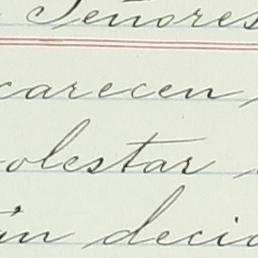 Señores
carecen
olestar
án decid